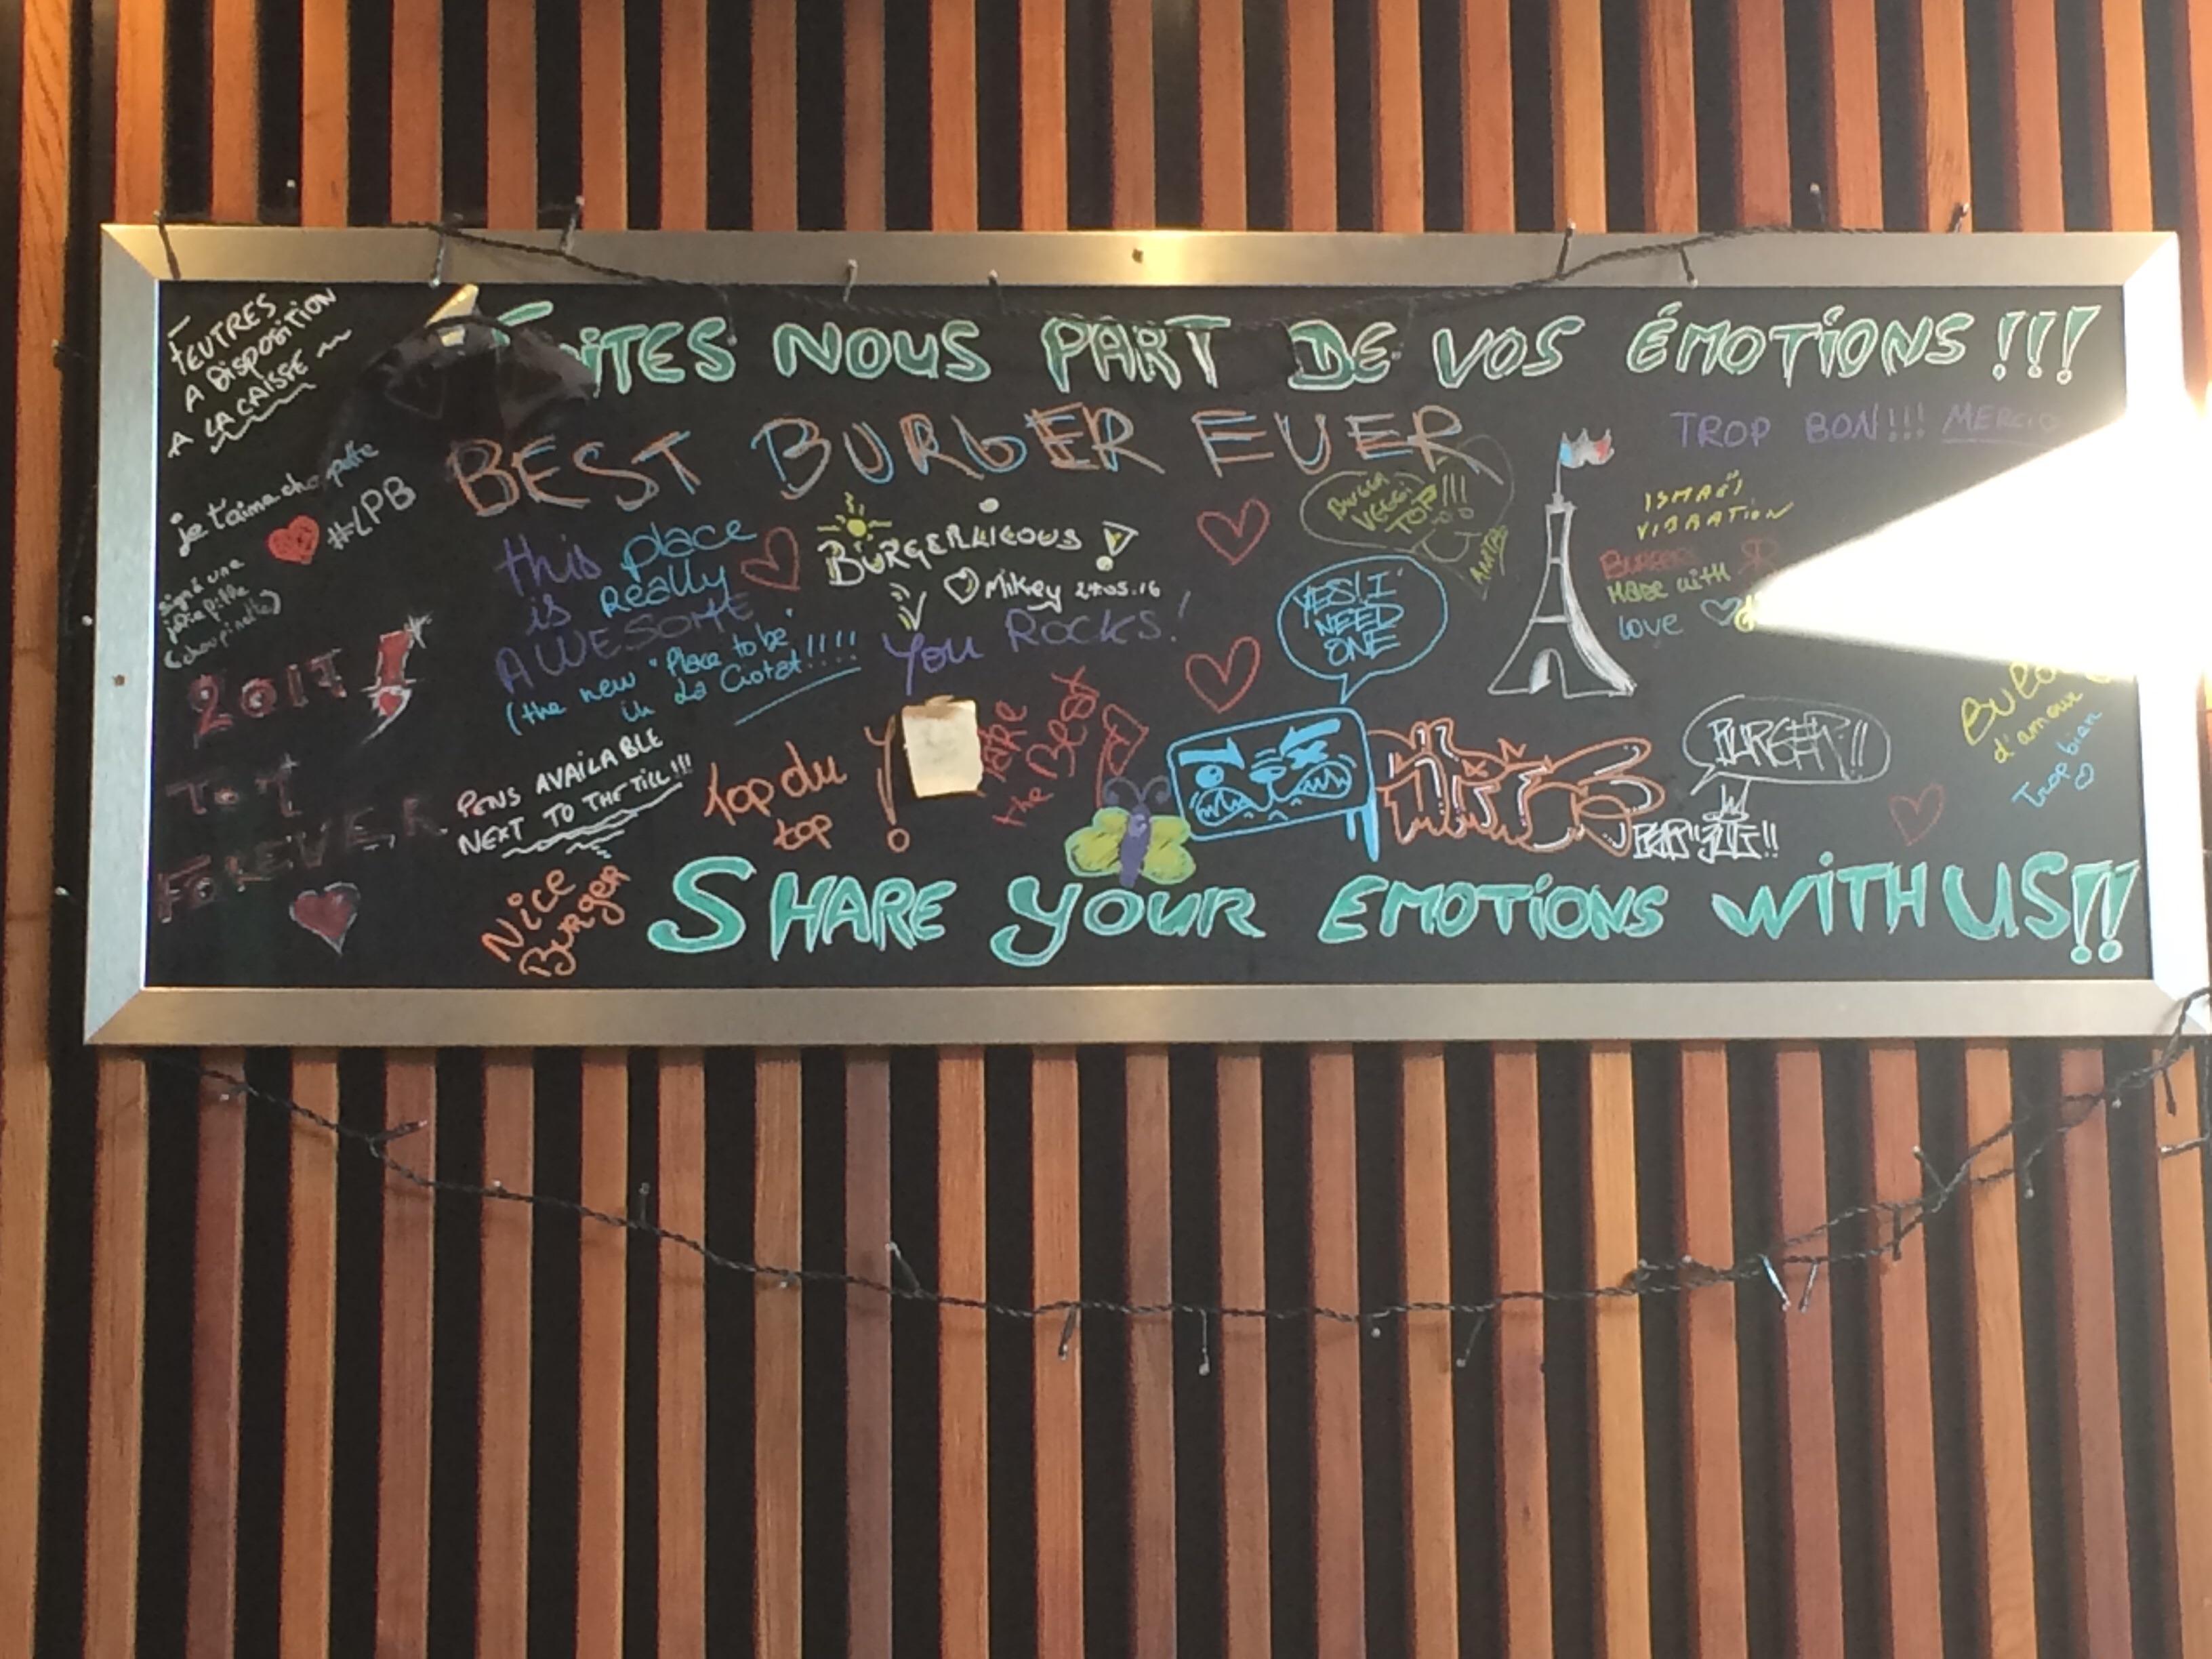 FEUTRES
A DISPOSITION
A LA CAISSE
NOUS PART DE VOS ÉMOTIONS !!!
BEST BURGER EVER
TROP BON!!! MERCI
je t'aime
#LPB
signé une
jolie pitte
(choupinette)
this place
is really
AWESOME
(the new "Place to be"
in La Ciotat!!!!
BURGERLICOUS !
♡ Mikey 24.05.16
YOU ROCKS!
BURGER
VEGGI
TOP!!!
YES! I
NEED
ONE
ISMAËL
VIBRATION
BURGERS
MADE with
love ♡
2017!
TOT
FOREVER
PENS AVAILABLE
NEXT TO THE TILL!!!
Top du
top
!
ARE
the Best
BURGER!!
d'amour
Trop bien
Nice
BURGER
SHARE YOUR EMOTIONS WITH US!!